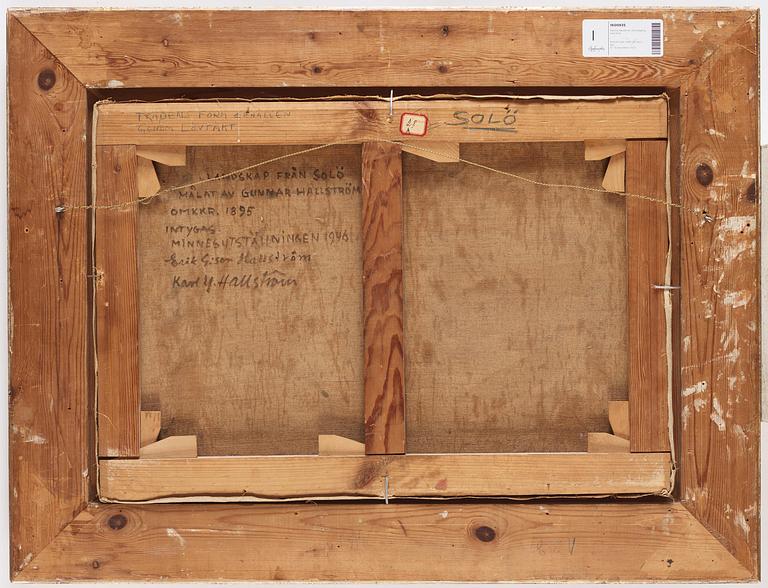 GENOM LÖVTAKT
25
SOLÖ
LANDSKAP FRÅN SOLÖ
MÅLAT AV GUNNAR HALLSTRÖM
OMKKR. 1895
INTYGAS
MINNESUTSTÄLLNINGEN 1946
Erik Eison Hallström
Karl Y. Hallström